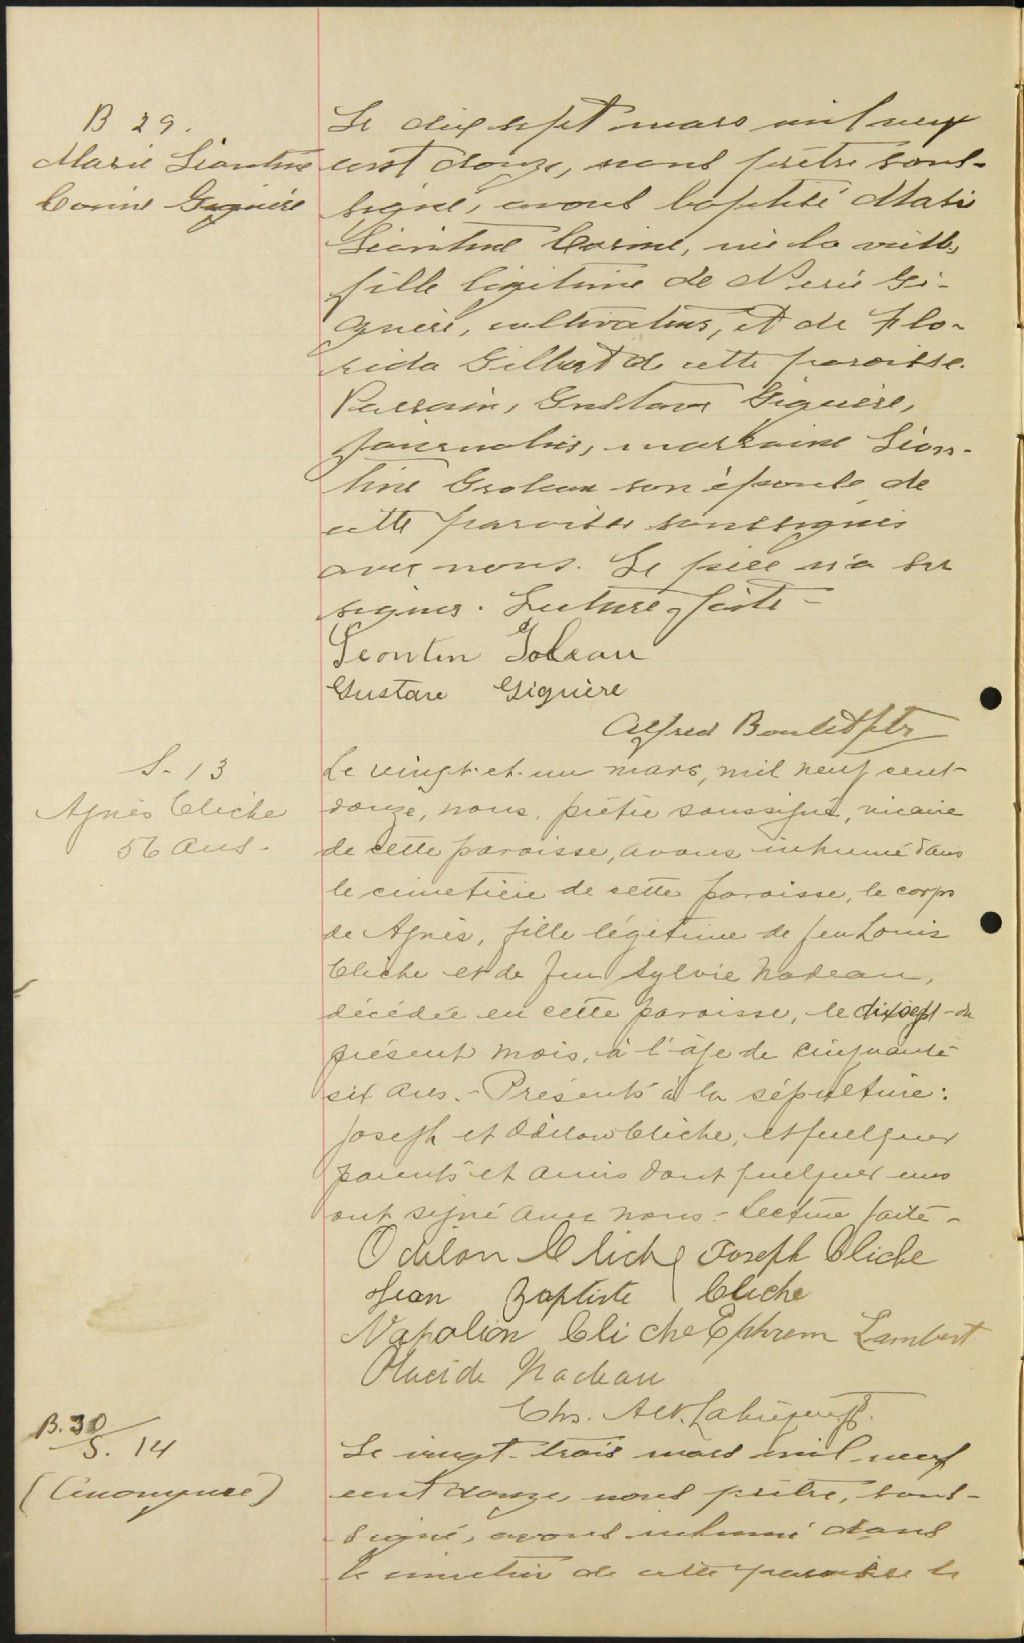 B 29.
Marie Léontine
Corine Giguère
Le dix sept mars mil neuf
cent douze, nous prêtre sous-
signé, avons baptisé Marie
Léontine Corine, née la veille,
fille légitime de Nérée Gi-
guère, cultivateur, et de Flo-
rida Gilbert de cette paroisse.
Parrain, Gustave Giguère,
journalier, marraine Léon-
tine Groleau son épouse de
cette paroisse soussignés
avec nous. Le père n'a su
signer. Lecture faite -
Leontin Goleau
Gustave Giguère
Alfred Boulet ptr
S. 13
Agnès Cliche
56 ans -
Le vingt-et-un mars, mil neuf cent
douze, nous, prêtre soussigné, vicaire
de cette paroisse, avons inhumé dans
le cimetière de cette paroisse, le corps
de Agnès, fille légitime de feu Louis
Cliche et de feu Sylvie Nadeau,
décédée en cette paroisse, le dix sept du
présent mois, à l'âge de cinquante
six ans. - Présents à la sépulture:
Joseph et Odilon Cliche, et quelques
parents et amis dont quelques uns
ont signé avec nous - Lecture faite -
Odilon Cliche Joseph Cliche
Jean Baptiste Cliche
Napoléon Cliche Ephrem Lambert
Placide Nadeau
Chs. Alt.
B. 30
S. 14
(Anonyme)
Le vingt-trois mars mil neuf
cent douze, nous prêtre, sous-
signé, avons inhumé dans
le cimetière de cette paroisse le